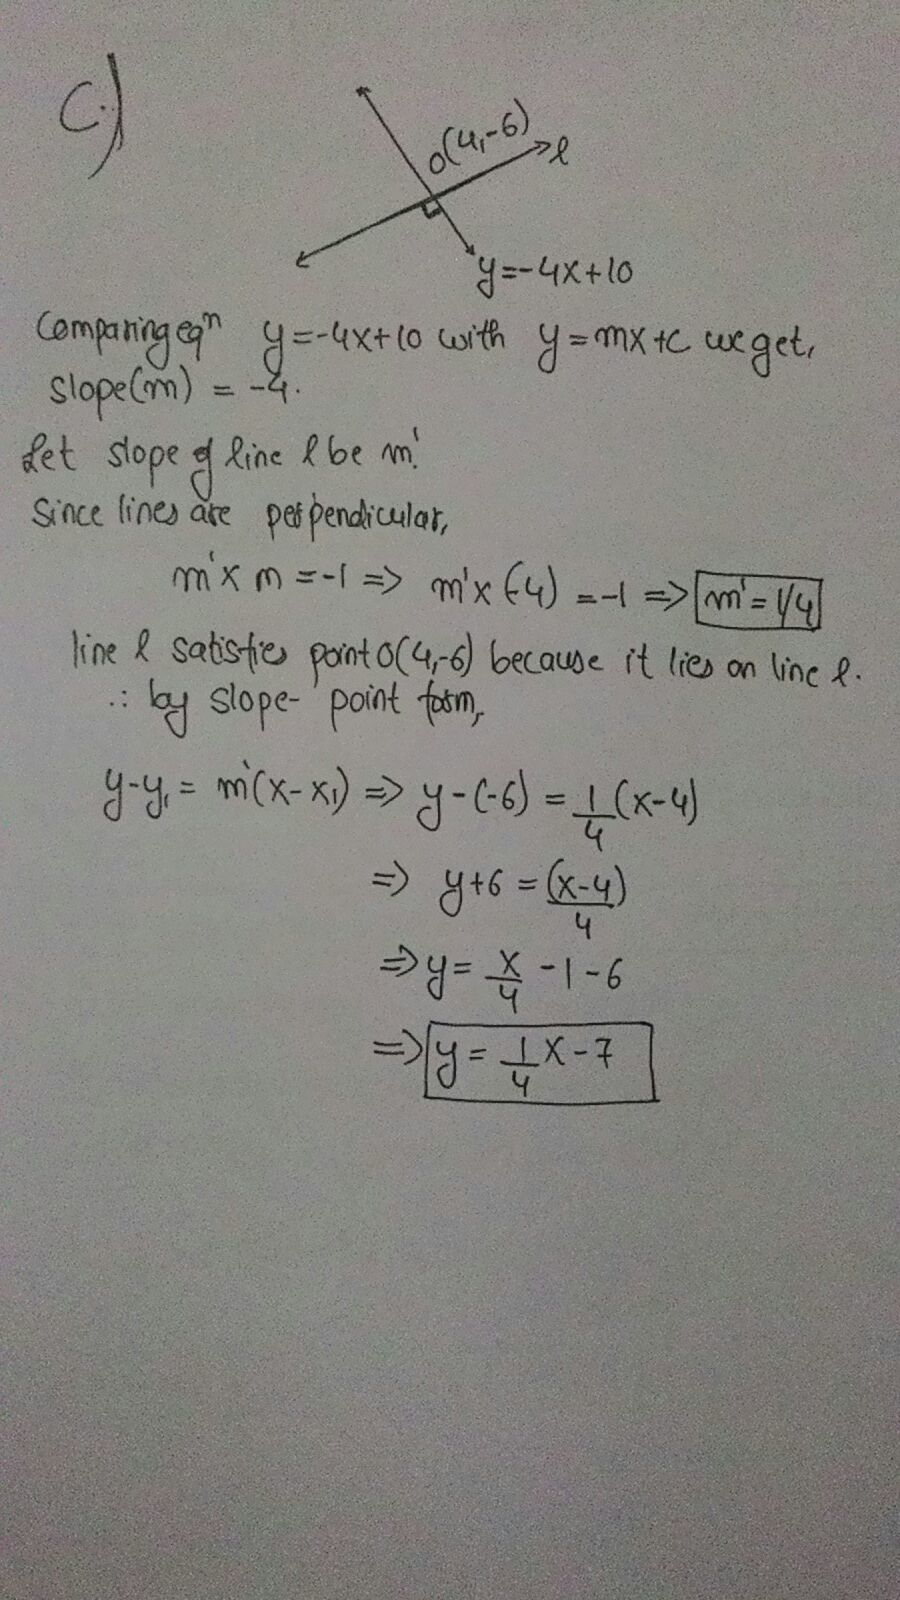 C.)
O(4,-6)
l
y=-4x+10
Comparing eqⁿ y=-4x+10 with y=mx+c we get,
slope(m) = -4.
Let slope of line l be m'.
Since lines are perpendicular,
m'x m = -1 => m'x (-4) = -1 => m' = 1/4
line l satisfies point O(4,-6) because it lies on line l.
∴ by slope- point form,
y-y₁ = m'(x-x₁) => y-(-6) = 1/4 (x-4)
=> y+6 = (x-4)/4
=> y = x/4 -1-6
=> y = 1/4 x-7